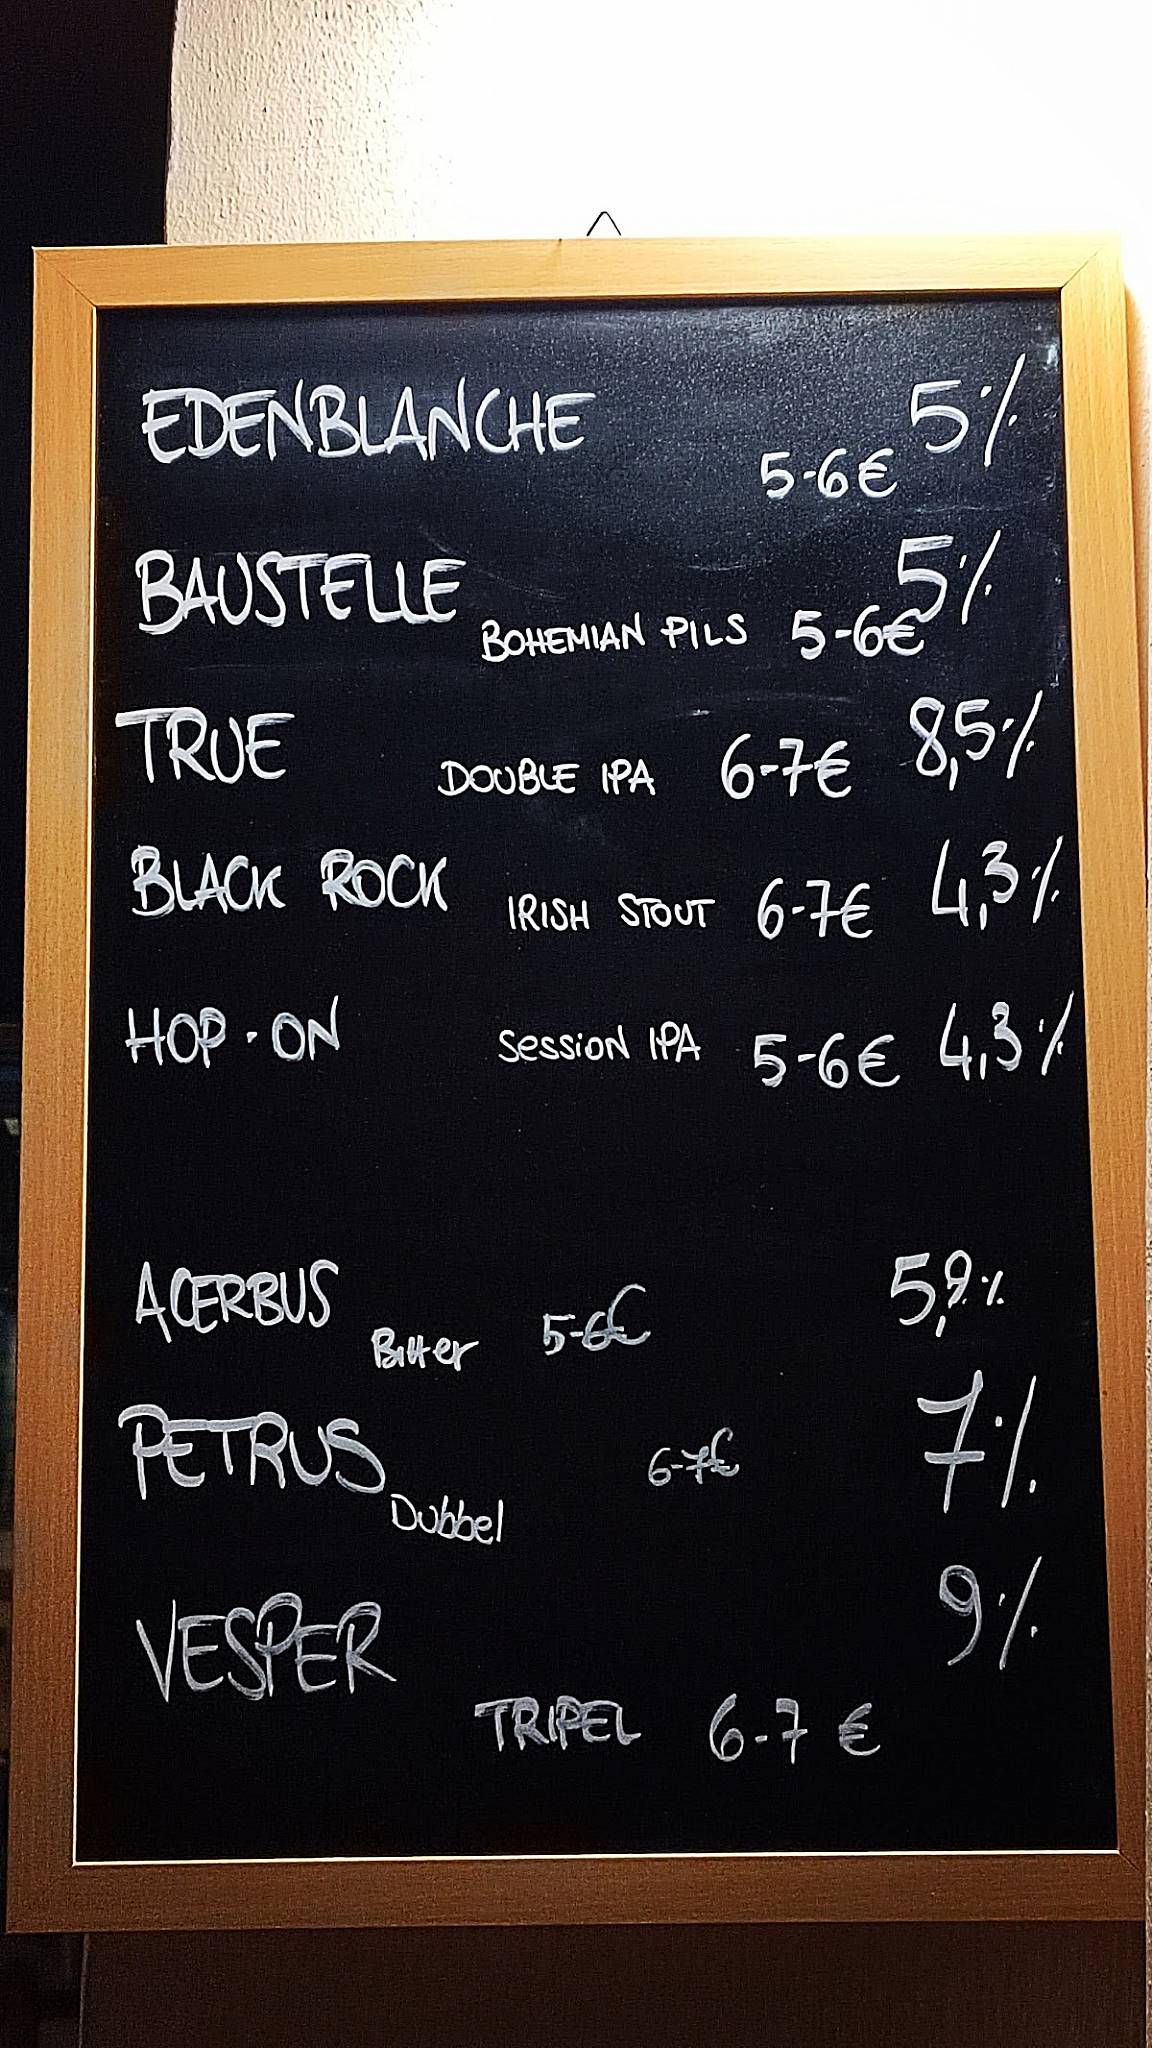 EDENBLANCHE 5-6€ 5%
BAUSTELLE BOHEMIAN PILS 5-6€ 5%
TRUE DOUBLE IPA 6-7€ 8,5%
BLACK ROCK IRISH STOUT 6-7€ 4,3%
HOP-ON SESSION IPA 5-6€ 4,3%
ACERBUS Bitter 5-6€ 5,9%
PETRUS Dubbel 6-7€ 7%
VESPER 9%
TRIPEL 6-7 €